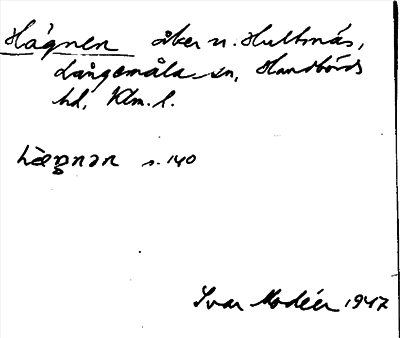 Hägnen åker n. Hultnäs,
Långemåla sn, Handbörds
hd, Klm. l.
hæŋnən s. 140
Ivar Modéer 1947